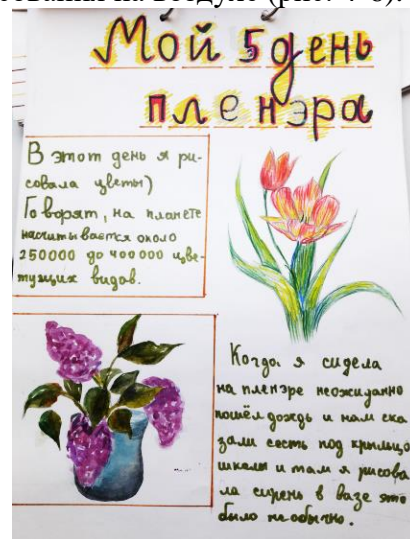 Мой 5 день
пленэра
В этом день я ри-
совала цветы)
Говорят, на планете
насчитывается около
250000 до 400000 цве-
тущих видов.
Когда я сидела
на пленэре неожиданно
пошёл дождь и нам ска
зали сесть под крыльцо
школы и там я рисова
ла сирень в вазе это
было необычно.